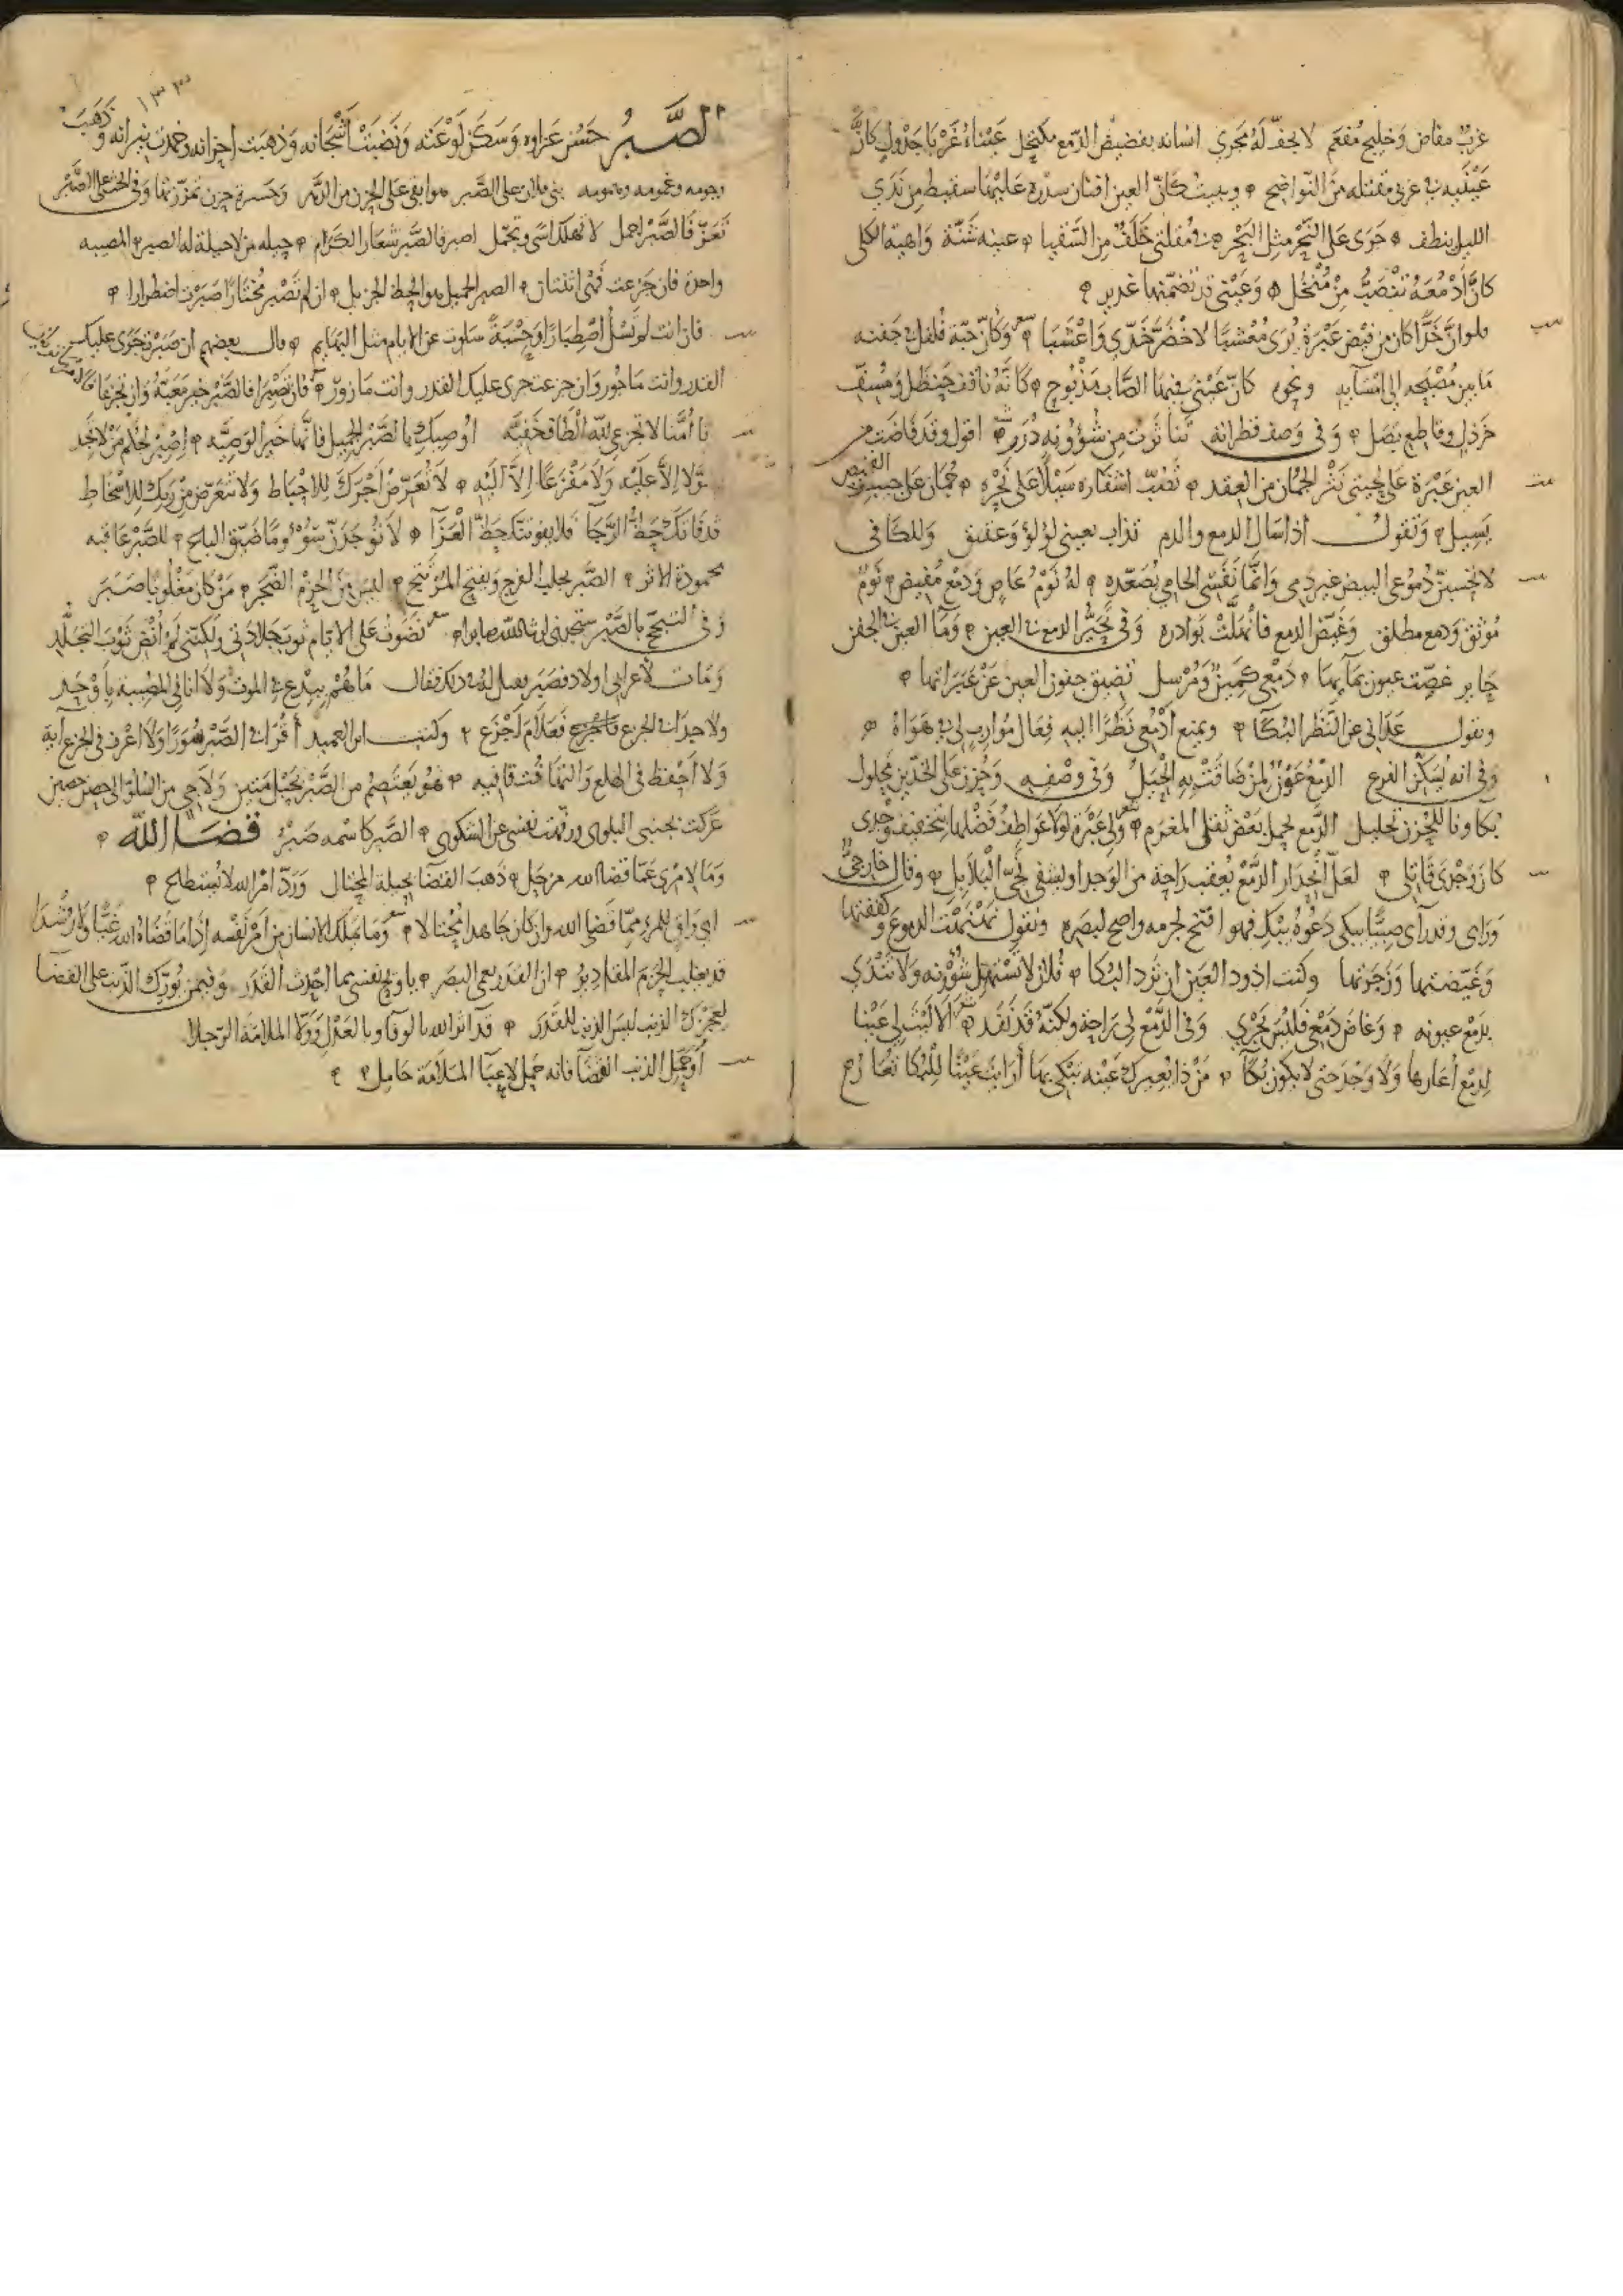 غرب مفاض وخليج مفعم لا يجف له مجرى اسانه بفضيض الدمع مكتحل عيناه غربا جدول كأن
عينيه في غربي مقتلة من النواضح وبيت كان العين افنان سدرة عليها سقيط من ندى
الليل ينطف جرى على النحر مثل البحر في مقلتي خلف من السقيا عينه شنة واهية الكلى
كأن أدمعه تنصب من منخل وعيني قد تضمنها غدير
فلو ان خدا كان من فيض عبرة يرى معشبا لاخضر خدي واعشبا وكان حبة فلفل في جفنه
ما بين مصبحه الى امسايه ونحوه كان عيني فيها الصاب مذبوح كانه ناقف حنظل ومسف
خردل وقاطع بصل وفي وصف قطرانه تناثرت من شؤونه درر اقول وقد فاضت
العين عبرة على لحيتي نثر الجمان من العقد تصب اشفاره سبلا على نحره جمان على جيب القميص
يسيل وتقول اذا سال الدمع والدم تذاب بعيني لؤلؤ وعقيق وللكافي
لا تحسبن دموعي البيض غير دمي وانما نفسي الحامي يصعده له نوم عاص ودمع مفيض نوم
موثق ودمع مطلق وغيض الدمع فانهلت بوادره وفي تحير الدمع في العين وما العين في الجفن
حاير غصت عيون بمآئها دمعي كمين ومرسل تضيق جفون العين عن عبراتها
وتقول عداني عن النظر البكا ويمنع ادمعي نظرا اليه فعال موارب لي في هواه
وفي انه يسكن الفزع الدمع عون لمن ضاقت به الحيل وفي وصفه وحزن على الخدين محلول
بكاونا للحزن تحليل الدمع يحمل بعض ثقل المغرم ولي عبرة لولا عواطف فضلها بتخفيف وجدي
كان وجدي قاتلي لعل انحدار الدمع يعقب راحة من الوجد او يشفي نجي البلابل وقال خارجي
وراى وقد رآى صبيا يبكي دعوه يبك فهو افتح لجرمه واصح لبصره وتقول نهنهت الدموع وكففتها
وغيضتها وزجرتها وكنت اذود العين ان ترد البكا فلان لا تستهل شؤونه ولا تندى
بدمع عيونه وغاض دمعي فليس يجري وفي الدمع لي راحة ولكنه قد نفد الا ليت لي عينا
لدمع اعارها ولا وجد حتى لا يكون بكآ من ذا يعيرك عينه تبكي بها أرايت عينا للبكا تعار رح
١٣٣
الصبر حسن عزاوه وسكن لوعته ونضبت اشجانه وذهبت احزانه وخمدت نيرانه وذهب
وجومه وغمومه وهمومه بني فلان على الصبر هو ابقى على الحزن من الدهر وحسرة حزن تمززتها وفي الحث على الصبر
تعز فالصبر اجمل لا تهلك اسى وتجمل اصبر فالصبر شعار الكرام حيلة من لا حيلة له الصبر المصيبه
واحدة فان جزعت فهي اثنتان الصبر الجميل هو الحظ الجزيل ان لم تصبر مختارا صبرت اضطرارا
فان انت لم تسل اصطبارا وحسبة سلوت عن الايام مثل البهايم قال بعضهم ان صبرت جرى عليك
القدر وانت ماجور وان جزعت جرى عليك القدر وانت مازور فان تصبرا فالصبر خير مغبة وان تجزعا
يا أمنا لا تجزعي لله الطاف خفيه اوصيك بالصبر الجميل فانها خير الوصيه اصبر لحكم من لا تجد
معولا الا عليه ولا مفزعا الا اليه لا تعرض اجرك للاحباط ولا تتعرض من ربك للاسخاط
قد فاتك حظ الرجا فلا يفوتنك حظ العزآ لا توجدن سؤ وما ضيق الباع للصبر عاقبه
محمودة الاثر الصبر يجلب الفرج ويفتح المرتتج ليس من الحزم الضجر من كان مغلوبا صبر
وفي التبجح بالصبر ستجدني ان شا الله صابرا نضوت على الايام ثوب جلادتي ولكنني لم انض ثوب التجلد
ومات لأعرابي اولاد فصبر فقيل له في ذلك فقال ما هم ببدع في الموت ولا انا في المصيبة باوحد
ولا جدا في الجزع فعلام اجزع وكتب ابن العميد أقرا في الصبر سورا ولا اعرف في الجزع اية
ولا احفظ في الهلع والتهافت قافيه هو يعتصم من الصبر بحبل متين ولاجي من السلو الى حصن حصين
عركت بجنبي البلوى ورفعت نفسي عن الشكوى الصبر كاسمه صبر قضاء الله
وما لامرى عما قضا الله مزحل ذهب القضا بحيلة المحتال ورد امر الله لا يستطاع
اي واق للمرء مما قضى الله وان كان جاهدا محتالا وما يملك الانسان من امر نفسه إذا ما قضاه الله غيا ولا رشدا
قد يغلب الحزم المقادير ان القدر يعمي البصر يا ويح نفسي بما احدث القدر وفيمن يورك الذنب على القضا
لعمرك الذنب ليس الذنب للقدر قد آثر الله بالوفا وبالعدل وولا الملامة الرجلا
أوحمل الذنب القضآ فانه حمل لاعبآ الملامة حامل